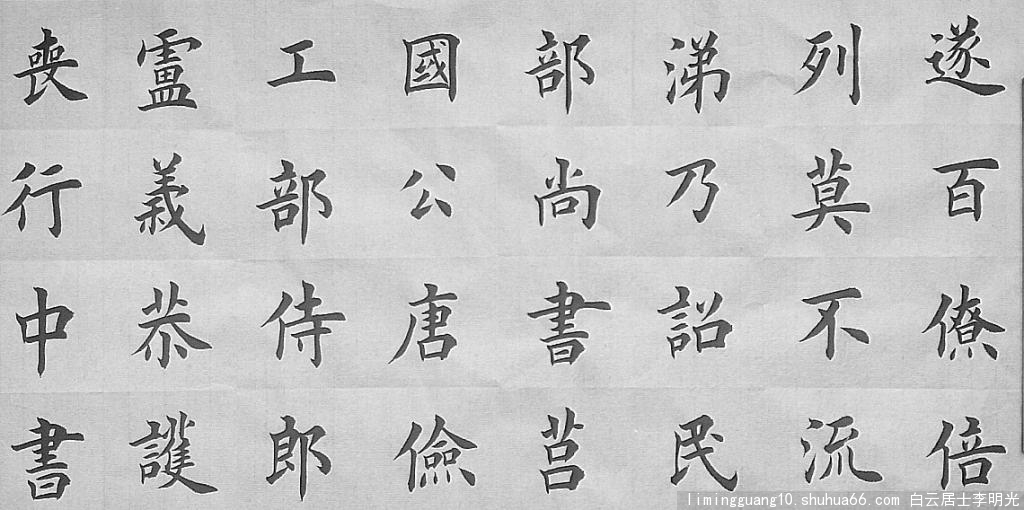 遂百僚倍
列莫不流
涕乃詔民
部尚書莒
國公唐儉
工部侍郎
盧義恭護
喪行中書
limingguang10.shuhua66.com 白云居士李明光